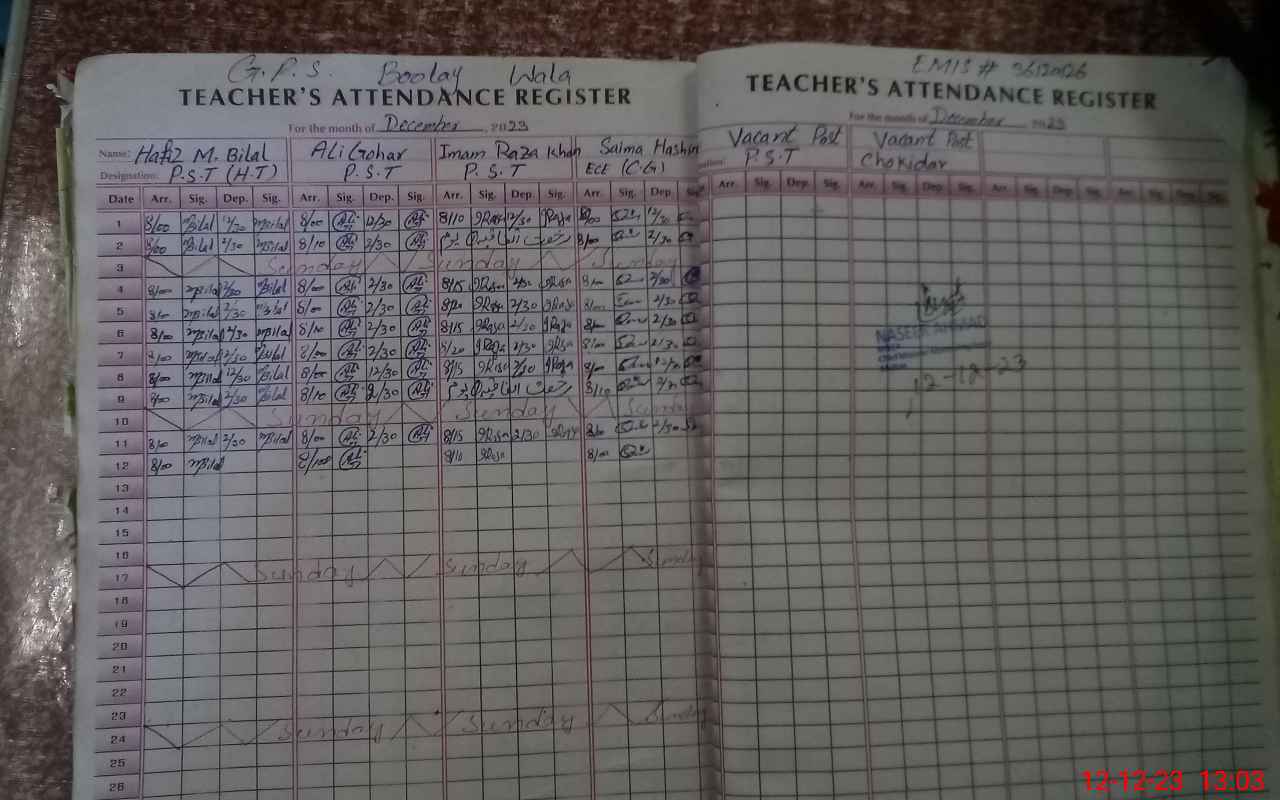 G.P.S. Boolay Wala
TEACHER'S ATTENDANCE REGISTER
For the month of December, 2023
Name: Hafiz M. Bilal Ali Gohar Imam Raza Khan Saima Hashim
Designation: P.S.T (H.T) P.S.T P.S.T ECE (C.G)
Date Arr. Sig. Dep. Sig. Arr. Sig. Dep. Sig. Arr. Sig. Dep. Sig. Arr. Sig. Dep. Sig.
1 8/00 MBilal 12/30 MBilal 8/00 Ali 12/30 Ali 8/10 IRaza 12/30 IRaza 8/00 12/30
2 8/00 MBilal 2/30 MBilal 8/10 Ali 2/30 Ali رخصت اتفاقیہ یوم 8/00 2/30
3 Sunday Sunday Sunday
4 8/00 MBilal 2/30 MBilal 8/00 Ali 2/30 Ali 8/15 IRaza 2/30 IRaza 8/00 2/30
5 8/00 MBilal 2/30 MBilal 8/00 Ali 2/30 Ali 8/20 IRaza 2/30 IRaza 8/00 2/30
6 8/00 MBilal 2/30 MBilal 8/10 Ali 2/30 Ali 8/15 IRaza 2/30 IRaza 8/00 2/30
7 8/00 MBilal 2/30 MBilal 8/00 Ali 2/30 Ali 8/20 IRaza 2/30 IRaza 8/00 2/30
8 8/00 MBilal 12/30 MBilal 8/00 Ali 12/30 Ali 8/15 IRaza 12/30 IRaza 8/00
9 8/00 MBilal 2/30 MBilal 8/10 Ali 2/30 Ali رخصت اتفاقیہ یوم 8/10 2/30
10 Sunday Sunday Sunday
11 8/00 MBilal 2/30 MBilal 8/00 Ali 2/30 Ali 8/15 IRaza 2/30 IRaza 8/00 2/30
12 8/00 MBilal 8/00 Ali 8/10 IRaza 8/00
13
14
15
16
17 Sunday Sunday Sunday
18
19
20
21
22
23
24 Sunday Sunday Sunday
25
26
EMIS # 3612026
TEACHER'S ATTENDANCE REGISTER
For the month of December, 2023
Vacant Post Vacant Post
P.S.T Chokidar
Arr. Sig. Dep. Sig. Arr. Sig. Dep. Sig. Arr. Sig. Dep. Sig. Arr. Sig. Dep. Sig.
NASEER AHMAD
12-12-23
12-12-23 13:03